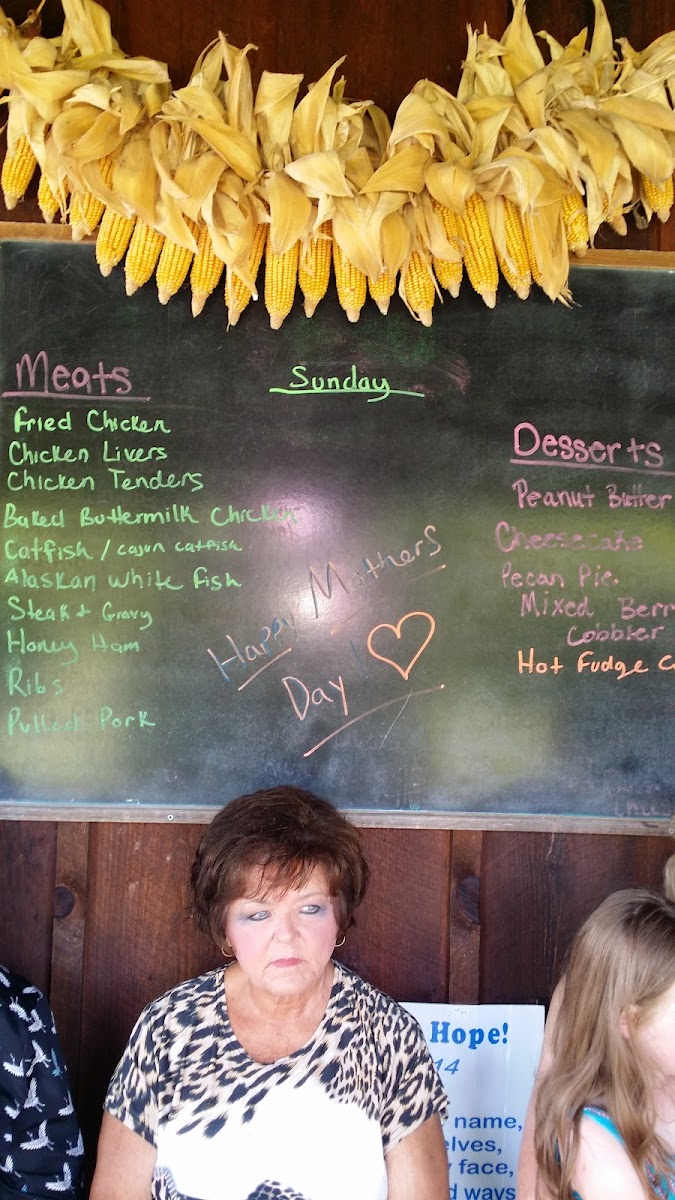 Meats
Fried Chicken
Chicken Livers
Chicken Tenders
Baked Buttermilk Chicken
Catfish / cajun catfish
Alaskan white fish
Steak + Gravy
Honey Ham
Ribs
Pulled Pork
Sunday
Happy Mothers
Day!
Desserts
Peanut Butter
Cheesecake
Pecan Pie.
Mixed Berr
Cobbler
Hot Fudge C
Hope!
14
name,
elves,
face,
d ways